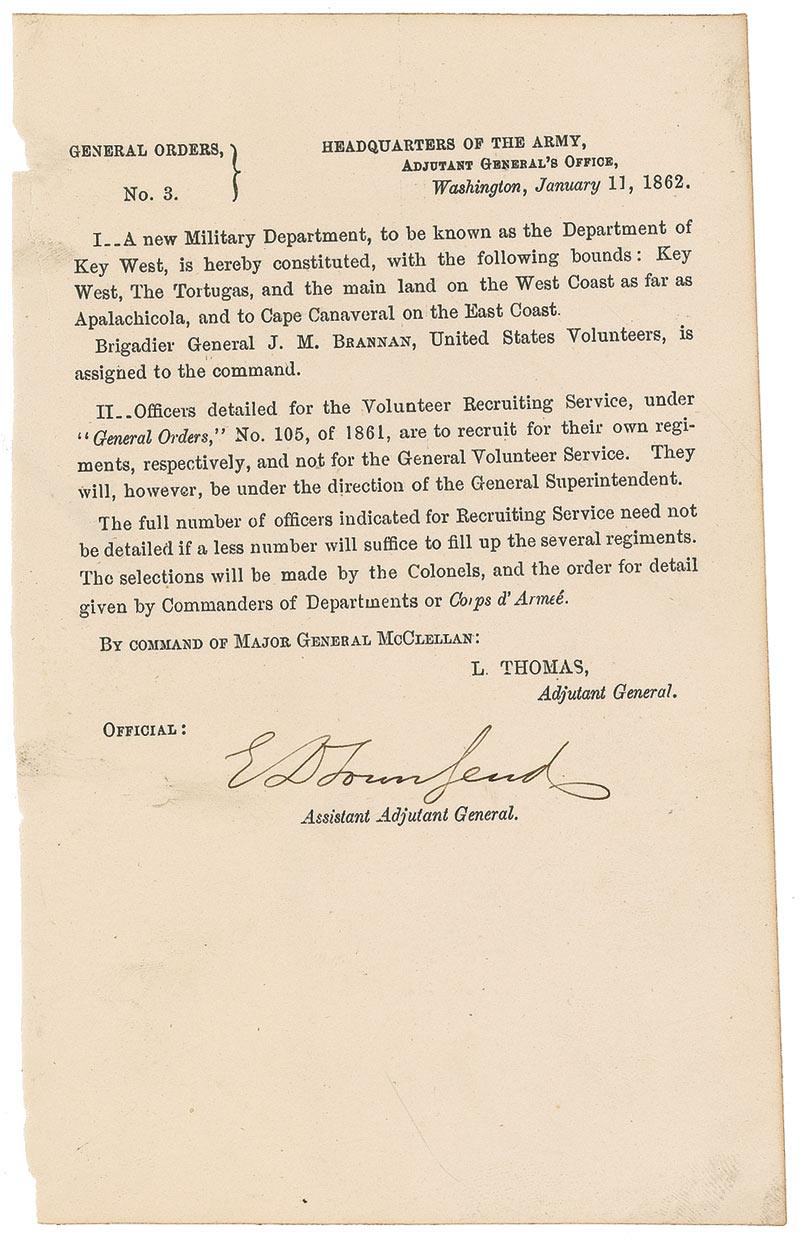 GENERAL ORDERS,
No. 3.
HEADQUARTERS OF THE ARMY,
ADJUTANT GENERAL'S OFFICE,
Washington, January 11, 1862.
I--A new Military Department, to be known as the Department of
Key West, is hereby constituted, with the following bounds: Key
West, The Tortugas, and the main land on the West Coast as far as
Apalachicola, and to Cape Canaveral on the East Coast.
Brigadier General J. M. BRANNAN, United States Volunteers, is
assigned to the command.
II--Officers detailed for the Volunteer Recruiting Service, under
"General Orders," No. 105, of 1861, are to recruit for their own regi-
ments, respectively, and not for the General Volunteer Service. They
will, however, be under the direction of the General Superintendent.
The full number of officers indicated for Recruiting Service need not
be detailed if a less number will suffice to fill up the several regiments.
The selections will be made by the Colonels, and the order for detail
given by Commanders of Departments or Corps d'Armeé.
BY COMMAND OF MAJOR GENERAL MCCLELLAN:
L. THOMAS,
Adjutant General.
OFFICIAL:
E D Townsend
Assistant Adjutant General.